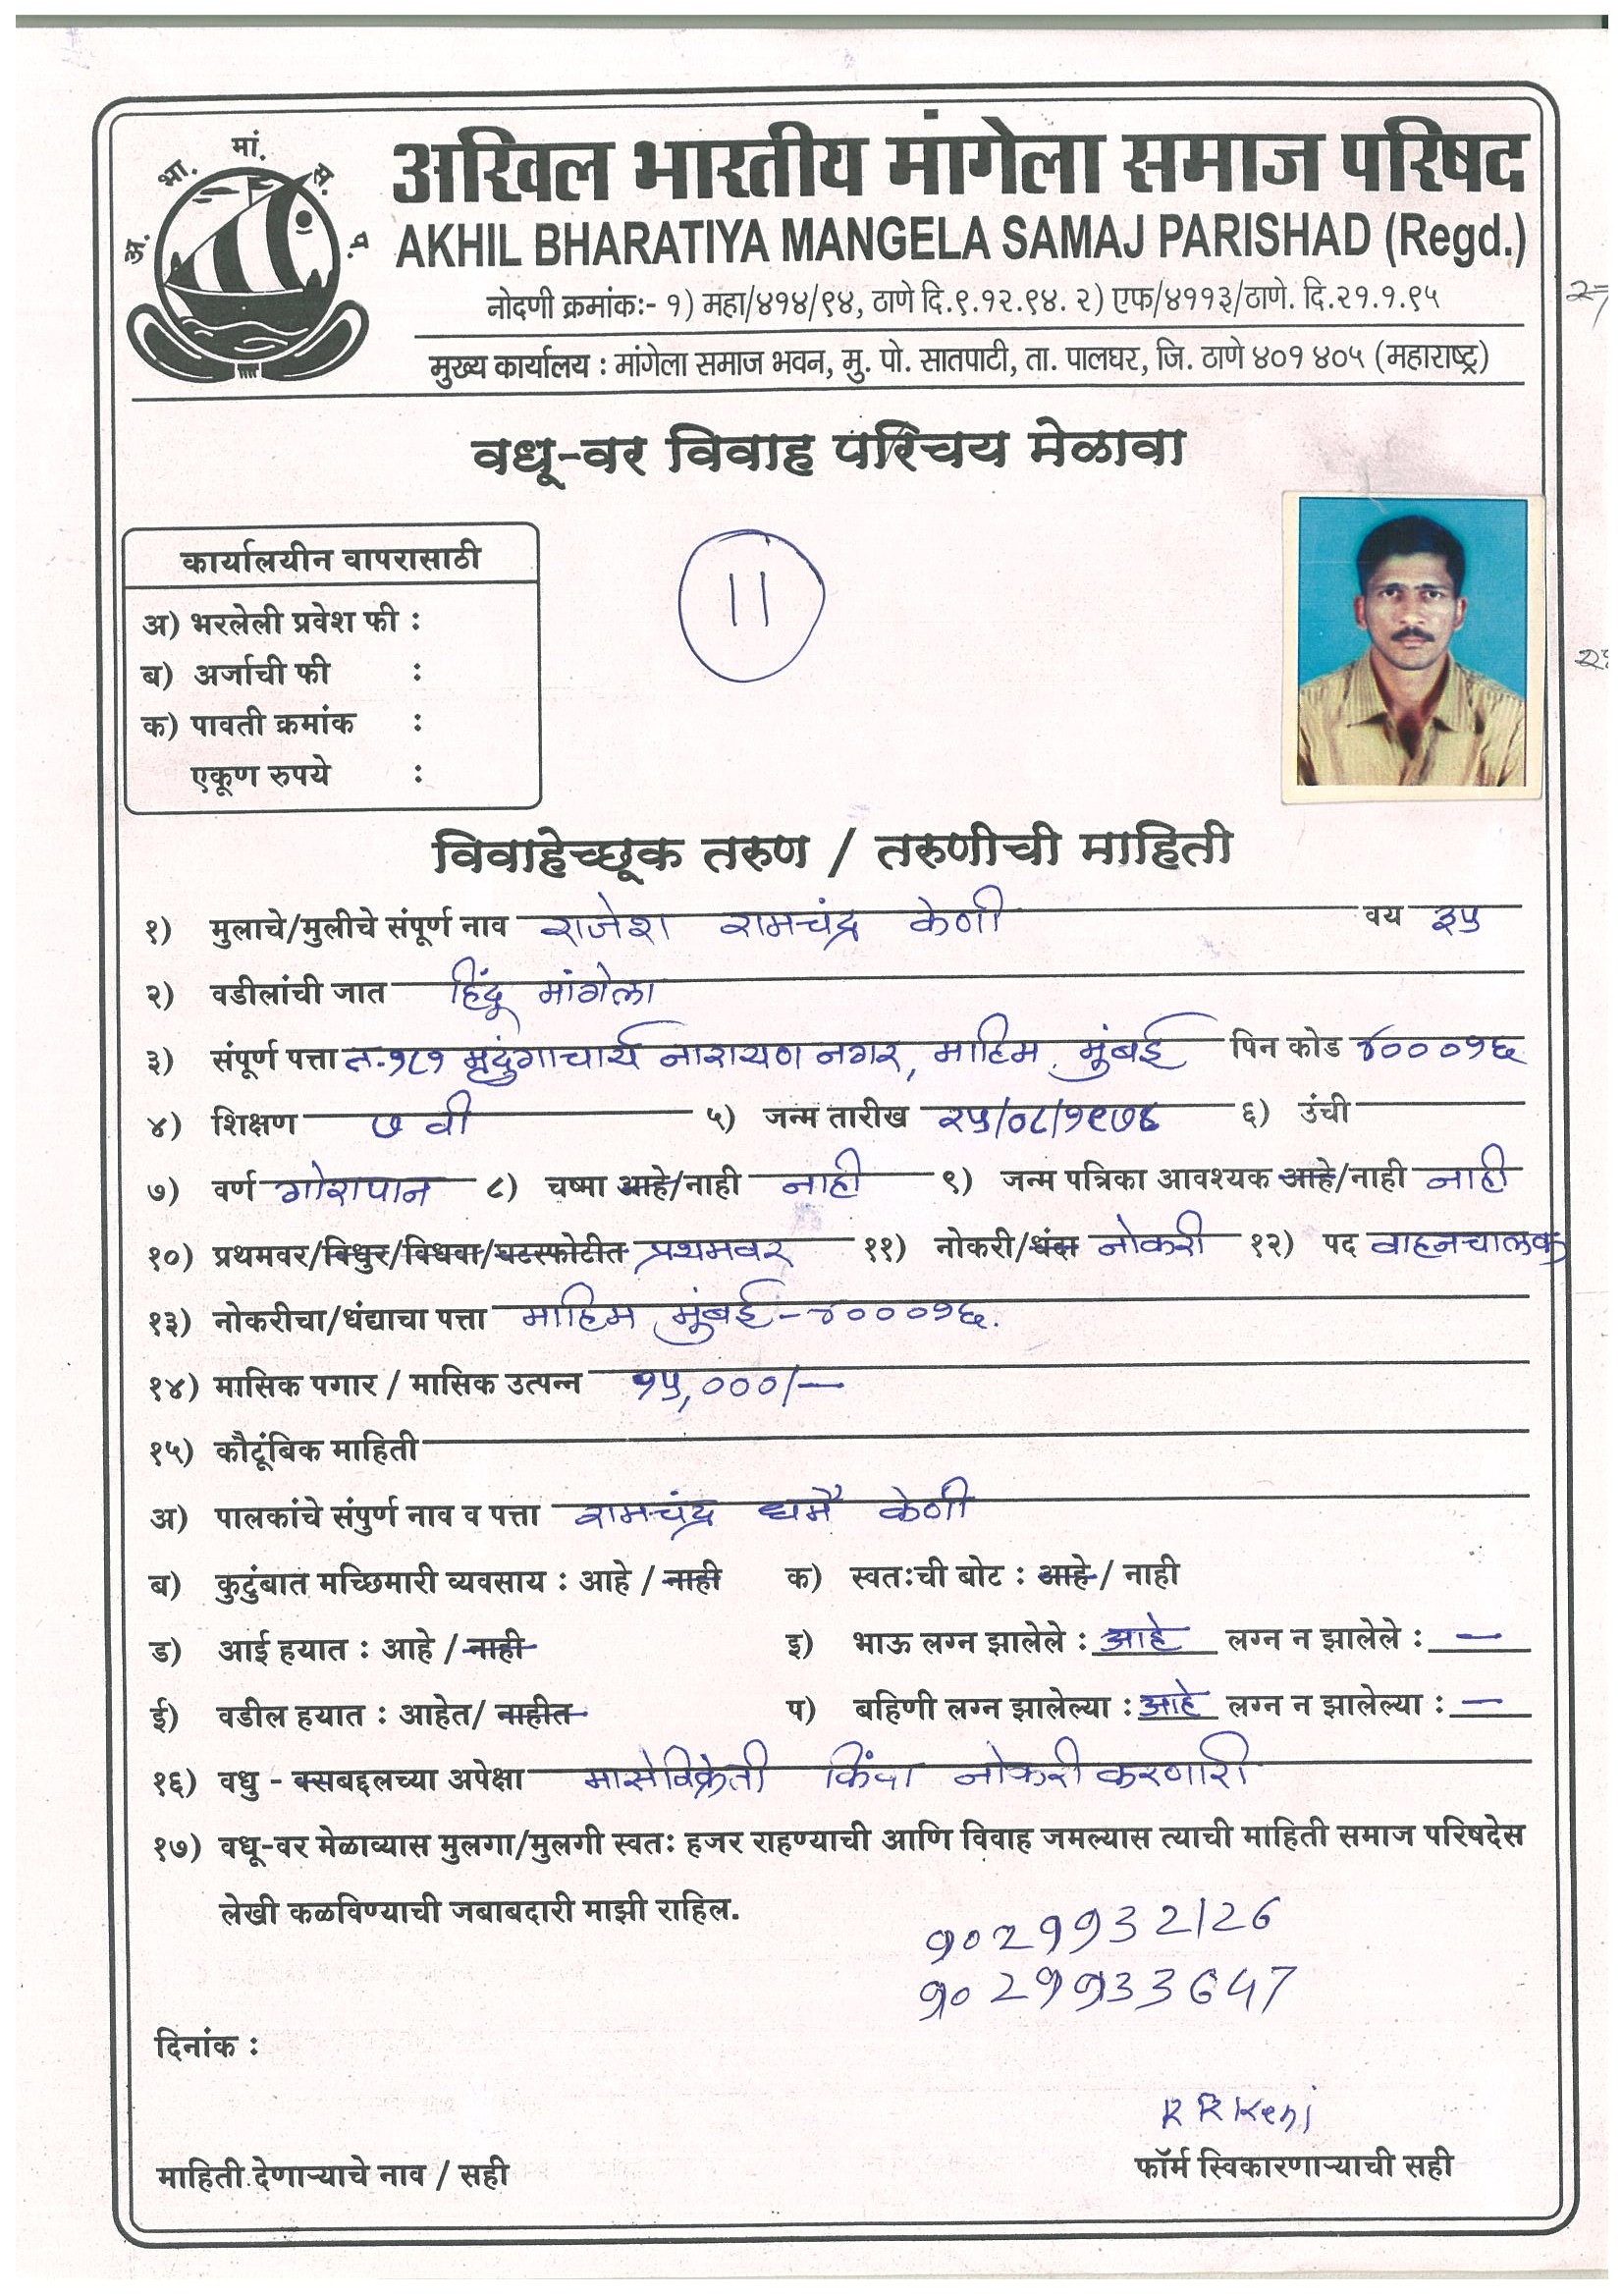 अ. भा. मां. स. प.
अखिल भारतीय मांगेला समाज परिषद
AKHIL BHARATIYA MANGELA SAMAJ PARISHAD (Regd.)
नोदणी क्रमांकः- १) महा/४१४/९४, ठाणे दि.९.१२.९४. २) एफ/४११३/ठाणे. दि.२१.१.९५
मुख्य कार्यालय : मांगेला समाज भवन, मु. पो. सातपाटी, ता. पालघर, जि. ठाणे ४०१ ४०५ (महाराष्ट्र)
वधू-वर विवाह परिचय मेळावा
कार्यालयीन वापरासाठी
अ) भरलेली प्रवेश फी :
ब) अर्जाची फी :
क) पावती क्रमांक :
एकूण रुपये :
11
विवाहेच्छूक तरुण / तरुणीची माहिती
१) मुलाचे/मुलीचे संपूर्ण नाव राजेश रामचंद्र केणी वय ३५
२) वडीलांची जात हिंदू मांगेला
३) संपूर्ण पत्ता न.१८१ मृदुंगाचार्य नारायण नगर, माहिम, मुंबई पिन कोड ४०००१६
४) शिक्षण ७ वी ५) जन्म तारीख २५/०८/१९७६ ६) उंची
७) वर्ण गोरापान ८) चष्मा आहे/नाही नाही ९) जन्म पत्रिका आवश्यक आहे/नाही नाही
१०) प्रथमवर/विधुर/विधवा/घटस्फोटीत प्रथमवर ११) नोकरी/धंदा नोकरी १२) पद वाहनचालक
१३) नोकरीचा/धंद्याचा पत्ता माहिम मुंबई-४०००१६.
१४) मासिक पगार / मासिक उत्पन्न १५,०००/-
१५) कौटूंबिक माहिती
अ) पालकांचे संपुर्ण नाव व पत्ता रामचंद्र धर्मे केणी
ब) कुटुंबात मच्छिमारी व्यवसाय : आहे / नाही क) स्वतःची बोट : आहे / नाही
ड) आई हयात : आहे / नाही इ) भाऊ लग्न झालेले : आहे लग्न न झालेले : —
ई) वडील हयात : आहेत/ नाहीत प) बहिणी लग्न झालेल्या : आहे लग्न न झालेल्या : —
१६) वधु - वराबद्दलच्या अपेक्षा मासेविक्रेती किंवा नोकरी करणारी
१७) वधू-वर मेळाव्यास मुलगा/मुलगी स्वतः हजर राहण्याची आणि विवाह जमल्यास त्याची माहिती समाज परिषदेस
लेखी कळविण्याची जबाबदारी माझी राहिल.
9029932126
9029933647
दिनांक :
R R Keni
माहिती देणाऱ्याचे नाव / सही
फॉर्म स्विकारणाऱ्याची सही